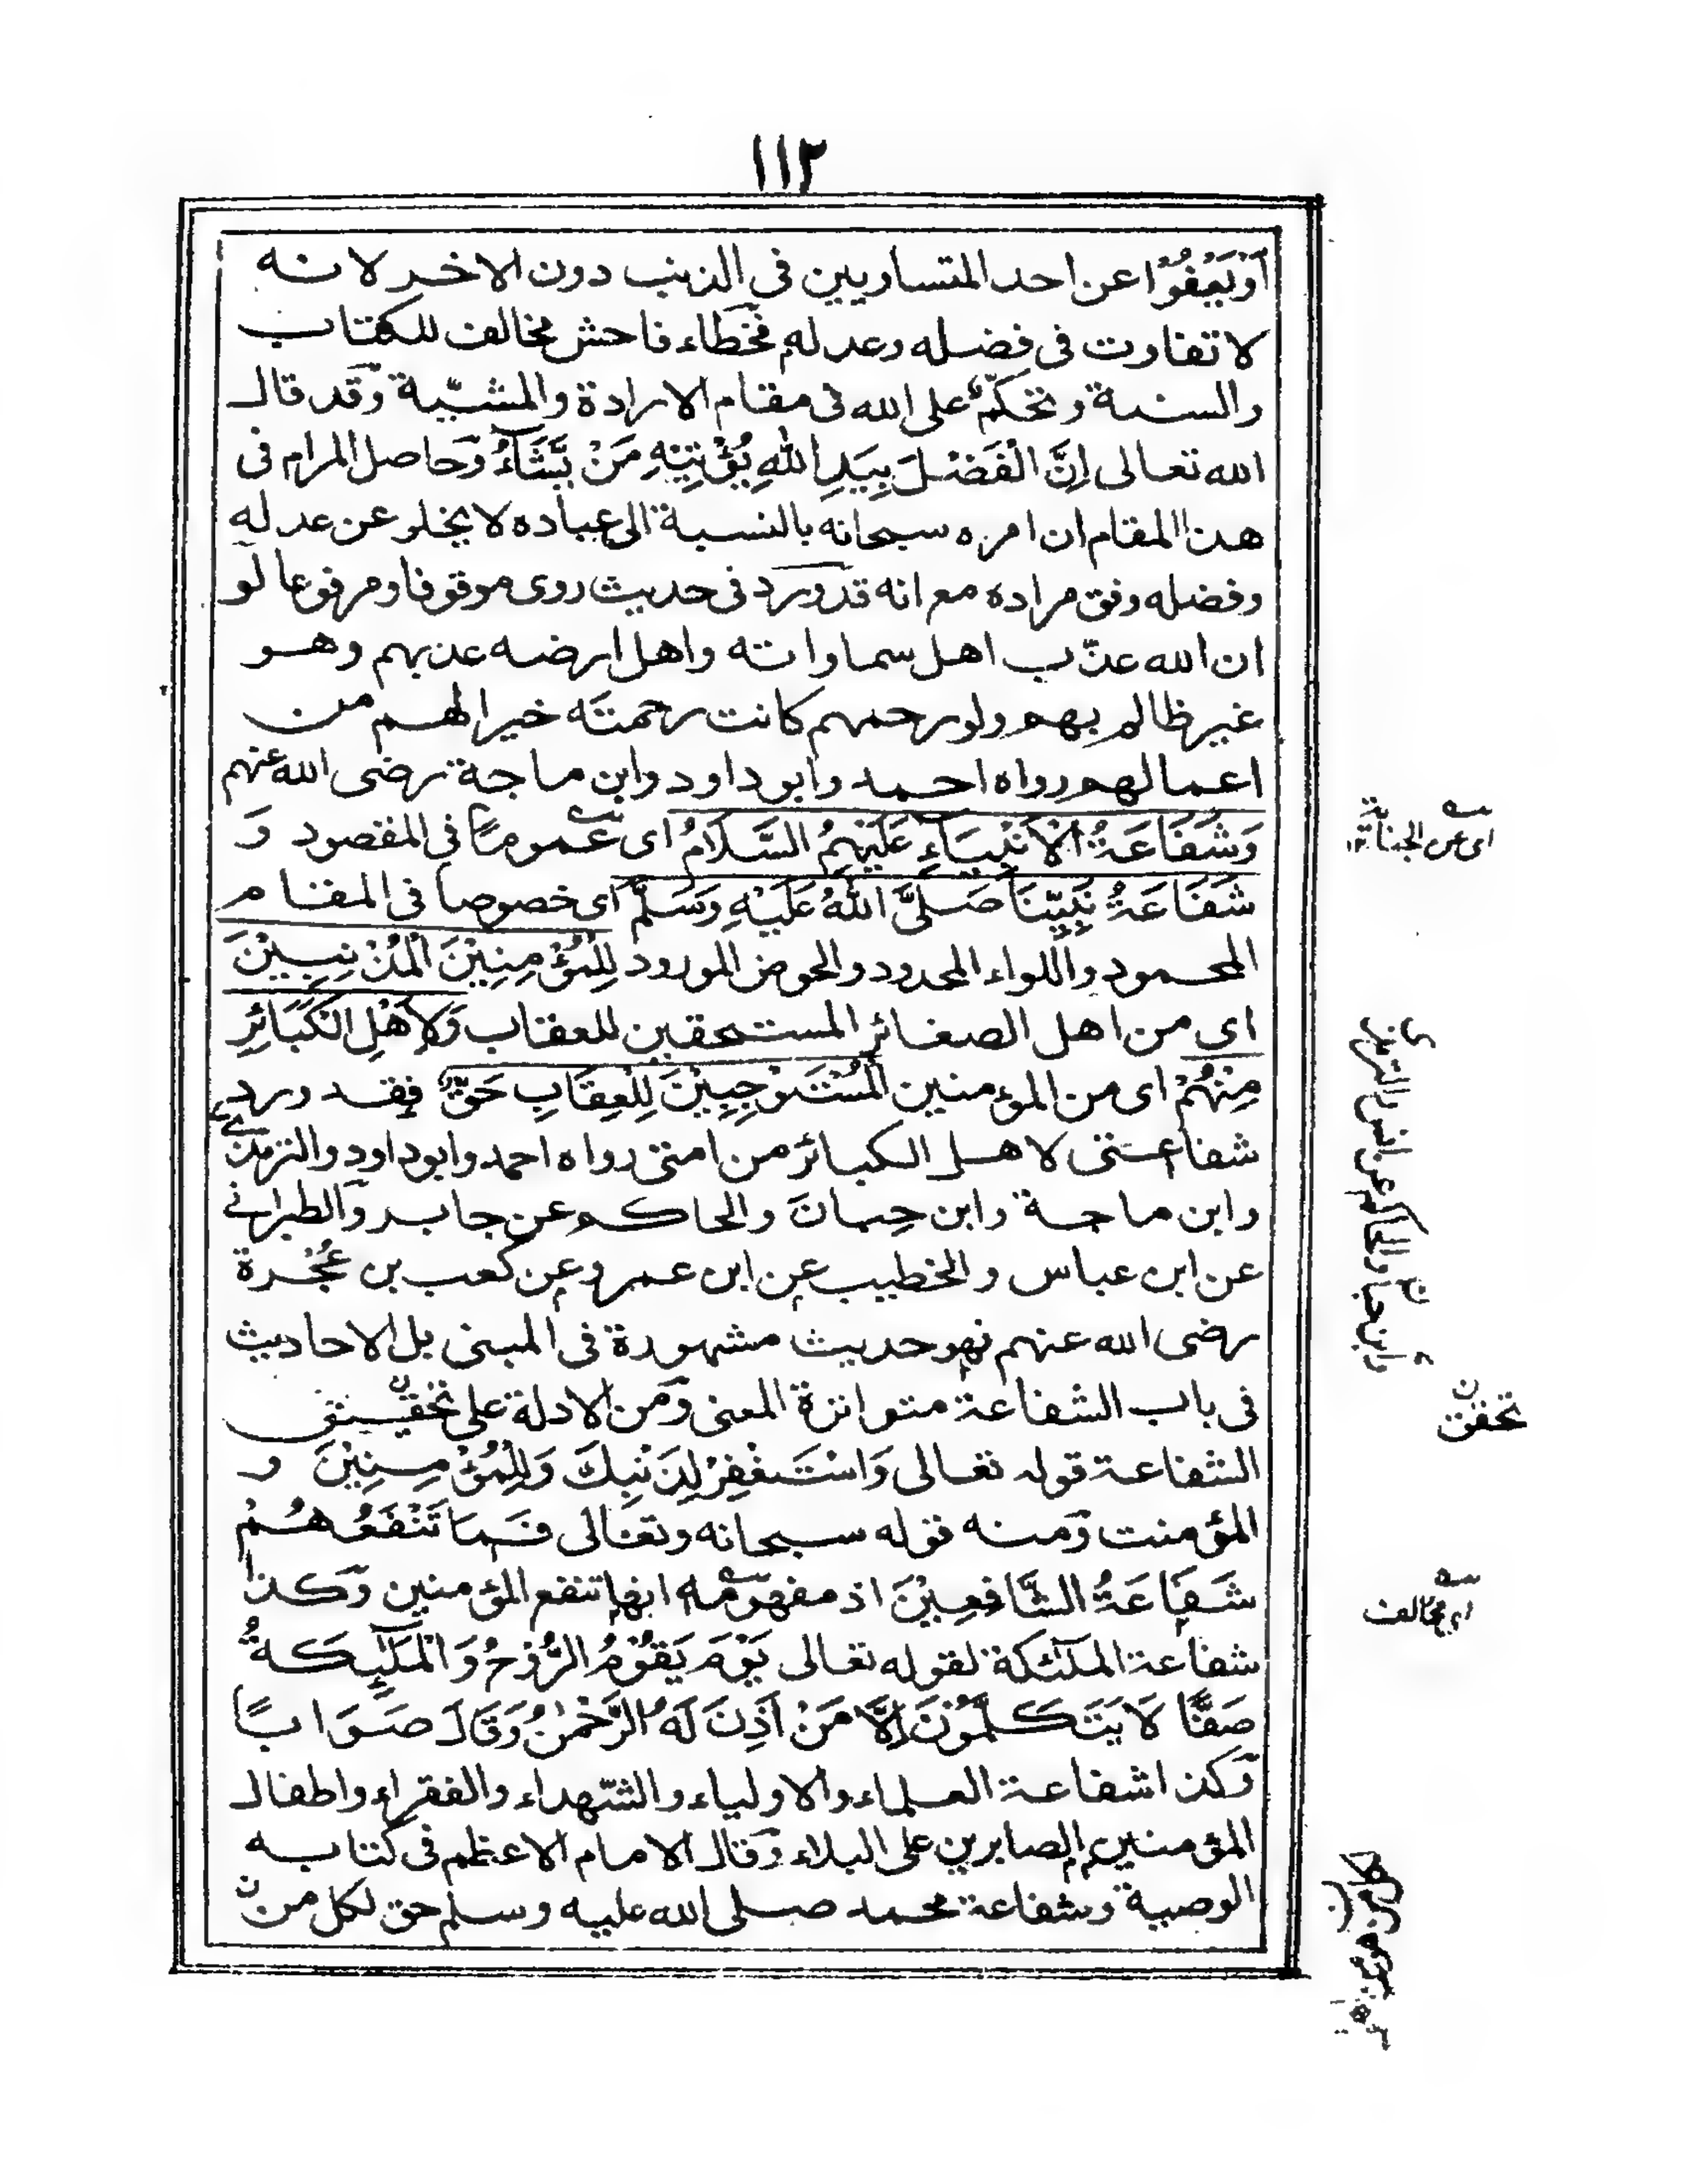 ١١٢
اَوْيَعْفُوْا عن احد المتساويين فى الذنب دون الاخر لانه
لا تفاوت فى فضله وعدله فخطاء فاحش مخالف للكتاب
والسنة وتحكّم على الله فى مقام الارادة والمشيّة وقد قال
الله تعالى اِنَّ الْفَضْلَ بِيَدِ اللهِ يُؤْتِيْهِ مَنْ يَّشَآءُ وحاصل المرام فى
هذا المقام ان امره سبحانه بالنسبة الى عباده لا يخلو عن عدله
وفضله وفق مراده مع انه قد ورد فى حديث روى موقوفا ومرفوعا لو
ان الله عذّب اهل سماواته واهل ارضه عذبهم وهو
غير ظالم بهم ولو رحمهم كانت رحمته خيرا لهم من
اعمالهم رواه احمد وابو داود وابن ماجة رضى الله عنهم
وَشَفَاعَةُ الْاَنْبِيَاءِ عَلَيْهِمُ السَّلَامُ اى عموما فى المقصود وَ
شَفَاعَةُ نَبِيِّنَا صَلَّى اللهُ عَلَيْهِ وَسَلَّمَ اى خصوصا فى المقام
المحمود واللواء المحدود والحوض المورود لِلْمُؤْمِنِيْنَ الْمُذْنِبِيْنَ
اى من اهل الصغائر المستحقين للعقاب وَلِاَهْلِ الْكَبَائِرِ
مِنْهُمْ اى من المؤمنين الْمُسْتَوْجِبِيْنَ لِلْعِقَابِ حَقٌّ فقد ورد
شفاعتى لاهل الكبائر من امتى رواه احمد وابو داود والترمذى
وابن ماجة وابن حبان والحاكم عن جابر والطبرانى
عن ابن عباس والخطيب عن ابن عمر وعن كعب بن عُجْرة
رضى الله عنهم فهو حديث مشهورة فى المبنى بل الاحاديث
فى باب الشفاعة متواترة المعنى ومن الادلة على تحقيق
الشفاعة قوله تعالى وَاسْتَغْفِرْ لِذَنْبِكَ وَلِلْمُؤْمِنِيْنَ و
المؤمنت ومنه قوله سبحانه وتعالى فَمَا تَنْفَعُهُمْ
شَفَاعَةُ الشَّافِعِيْنَ اذ مفهومه انها تنفع المؤمنين وكذا
شفاعة الملٰئكة لقوله تعالى يَوْمَ يَقُوْمُ الرُّوْحُ وَالْمَلٰٓئِكَةُ
صَفًّا لَا يَتَكَلَّمُوْنَ اِلَّا مَنْ اَذِنَ لَهُ الرَّحْمٰنُ وَقَالَ صَوَابًا
وكذا شفاعة العلماء والاولياء والشّهداء والفقراء واطفال
المؤمنين الصابرين على البلاء وقال الامام الاعظم فى كتابه
الوصية وشفاعة محمد صلى الله عليه وسلم حق لكل من
اى عن الجناية
تحقق
اى مخالف